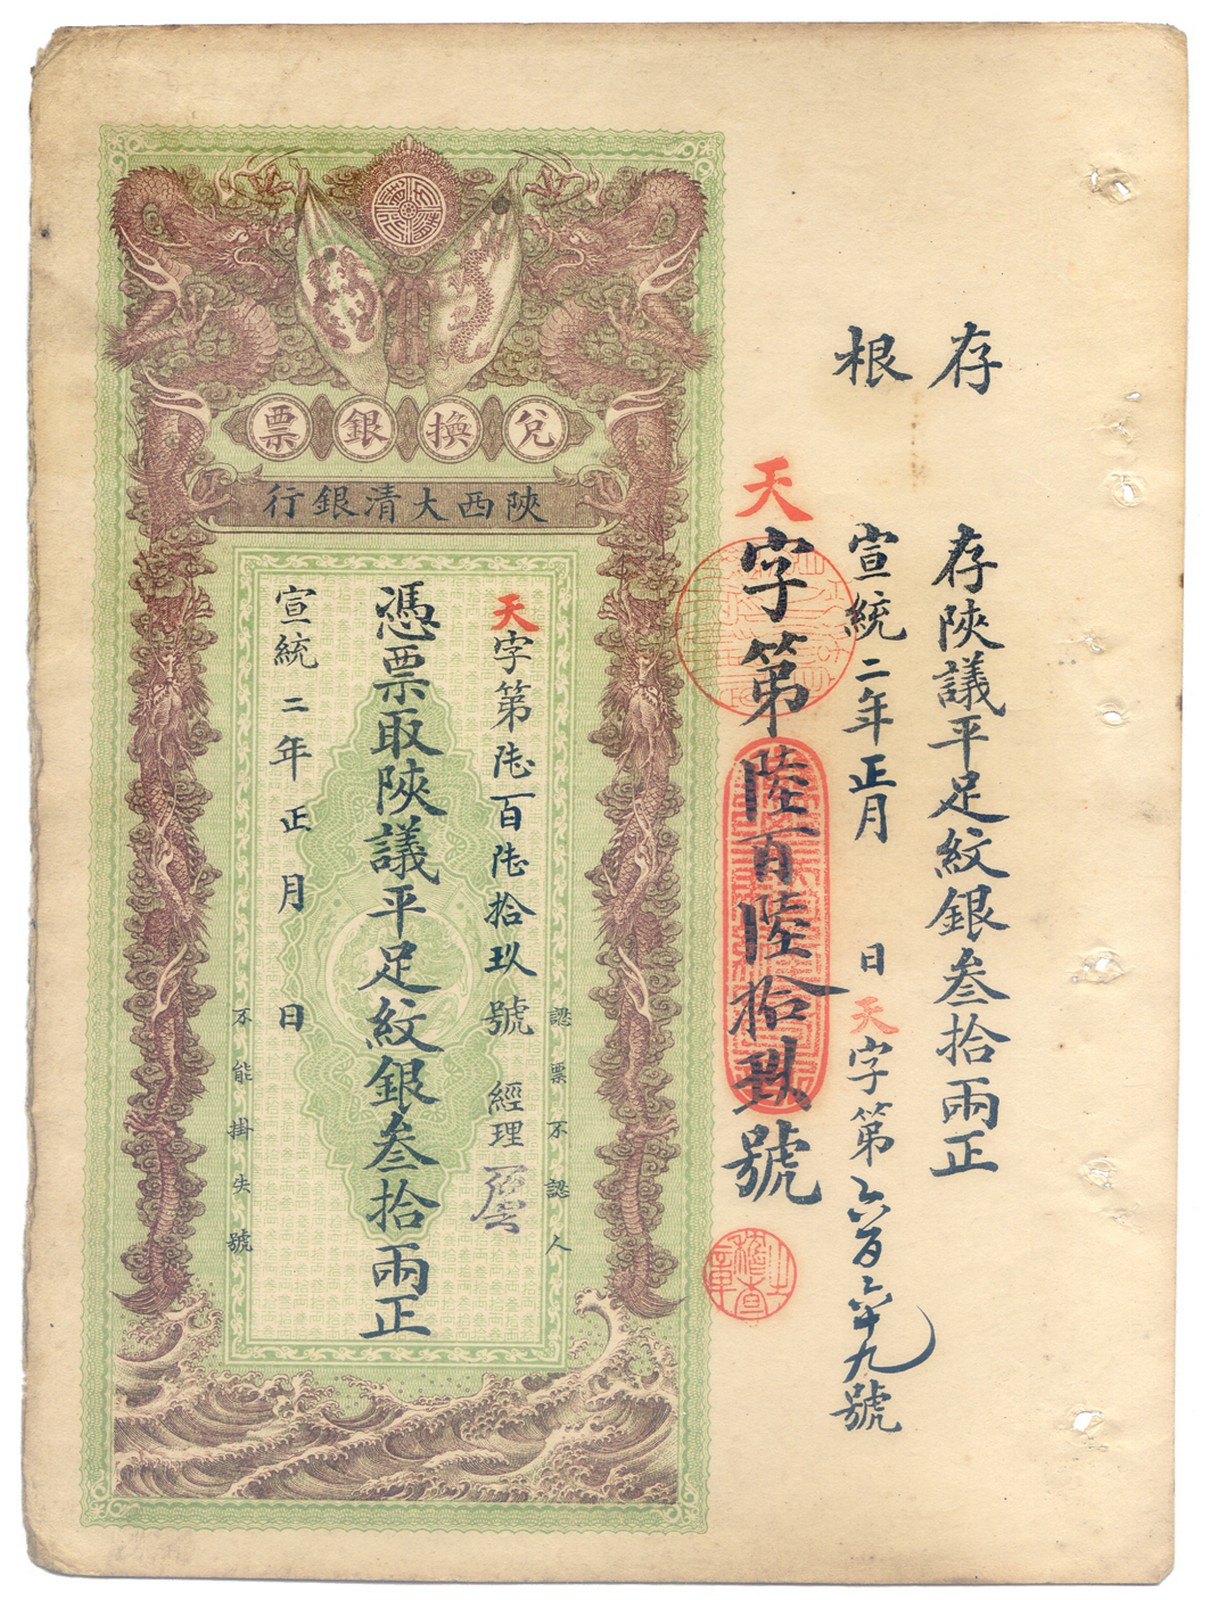 存根
存陝議平足紋銀叁拾兩正
宣統二年正月　日天字第六百六十九號
天字第陸百陸拾玖號
稽查之章
兌換銀票
陝西大清銀行
認票不認人
天字第陸百陸拾玖號　經理
憑票取陝議平足紋銀叁拾兩正
宣統二年正月　日
不能掛失號